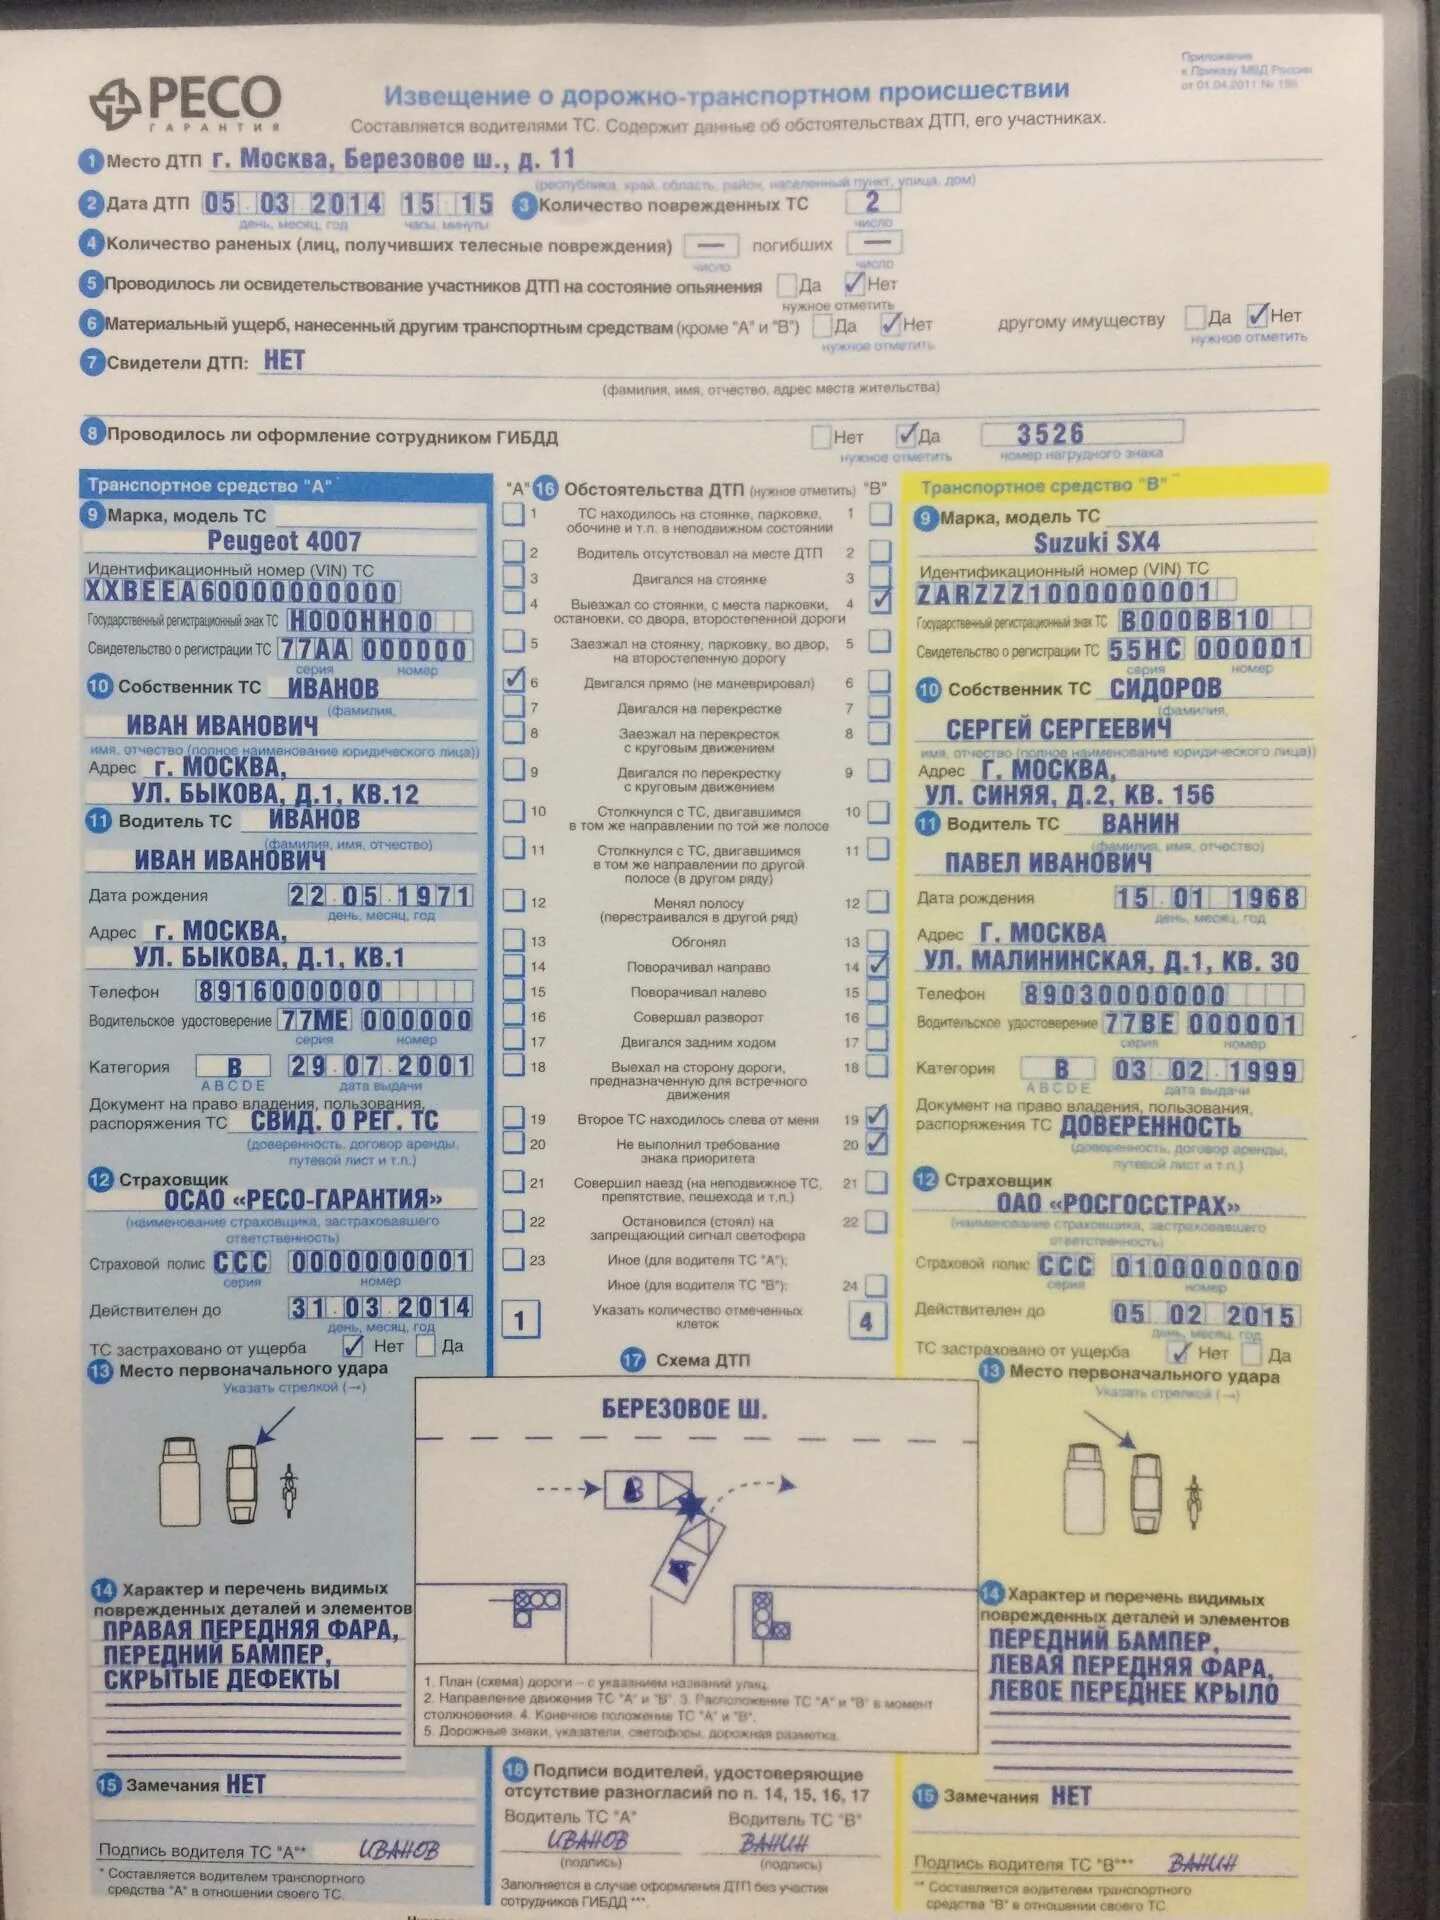 РЕСО
ГАРАНТИЯ
Извещение о дорожно-транспортном происшествии
Приложение
к Приказу МВД России
от 01.04.2011 № 155
Составляется водителями ТС. Содержит данные об обстоятельствах ДТП, его участниках.
1 Место ДТП г. Москва, Березовое ш., д. 11
(республика, край, область, район, населенный пункт, улица, дом)
2 Дата ДТП 05 03 2014 15 15 3 Количество поврежденных ТС 2
день, месяц, год часы, минуты число
4 Количество раненых (лиц, получивших телесные повреждения) — погибших —
число число
5 Проводилось ли освидетельствование участников ДТП на состояние опьянения Да ✓ Нет
нужное отметить
6 Материальный ущерб, нанесенный другим транспортным средствам (кроме "А" и "В") Да ✓ Нет другому имуществу Да ✓ Нет
нужное отметить нужное отметить
7 Свидетели ДТП: НЕТ
(фамилия, имя, отчество, адрес места жительства)
8 Проводилось ли оформление сотрудником ГИБДД Нет ✓ Да 3526
нужное отметить номер нагрудного знака
Транспортное средство "А"
9 Марка, модель ТС
Peugeot 4007
Идентификационный номер (VIN) ТС
XXBEEA60000000000
Государственный регистрационный знак ТС Н000НН00
Свидетельство о регистрации ТС 77АА 000000
серия номер
10 Собственник ТС ИВАНОВ
(фамилия,
ИВАН ИВАНОВИЧ
имя, отчество (полное наименование юридического лица))
Адрес г. МОСКВА,
УЛ. БЫКОВА, Д.1, КВ.12
11 Водитель ТС ИВАНОВ
(фамилия, имя, отчество)
ИВАН ИВАНОВИЧ
Дата рождения 22 05 1971
день, месяц, год
Адрес г. МОСКВА,
УЛ. БЫКОВА, Д.1, КВ.1
Телефон 89160000000
Водительское удостоверение 77МЕ 000000
серия номер
Категория В 29 07 2001
A B C D E дата выдачи
Документ на право владения, пользования,
распоряжения ТС СВИД. О РЕГ. ТС
(доверенность, договор аренды,
путевой лист и т.п.)
12 Страховщик
ОСАО «РЕСО-ГАРАНТИЯ»
(наименование страховщика, застраховавшего
ответственность)
Страховой полис ССС 0000000001
серия номер
Действителен до 31 03 2014
день, месяц, год
ТС застраховано от ущерба ✓ Нет Да
13 Место первоначального удара
Указать стрелкой (→)
14 Характер и перечень видимых
поврежденных деталей и элементов
ПРАВАЯ ПЕРЕДНЯЯ ФАРА,
ПЕРЕДНИЙ БАМПЕР,
СКРЫТЫЕ ДЕФЕКТЫ
15 Замечания НЕТ
Подпись водителя ТС "А"* ИВАНОВ
* Составляется водителем транспортного
средства "А" в отношении своего ТС.
"А" 16 Обстоятельства ДТП (нужное отметить) "В"
1 ТС находилось на стоянке, парковке, 1
обочине и т.п. в неподвижном состоянии
2 Водитель отсутствовал на месте ДТП 2
3 Двигался на стоянке 3
4 Выезжал со стоянки, с места парковки, 4 ✓
остановки, со двора, второстепенной дороги
5 Заезжал на стоянку, парковку, во двор, 5
на второстепенную дорогу
✓ 6 Двигался прямо (не маневрировал) 6
7 Двигался на перекрестке 7
8 Заезжал на перекресток 8
с круговым движением
9 Двигался по перекрестку 9
с круговым движением
10 Столкнулся с ТС, двигавшимся 10
в том же направлении по той же полосе
11 Столкнулся с ТС, двигавшимся 11
в том же направлении по другой
полосе (в другом ряду)
12 Менял полосу 12
(перестраивался в другой ряд)
13 Обгонял 13
14 Поворачивал направо 14 ✓
15 Поворачивал налево 15
16 Совершал разворот 16
17 Двигался задним ходом 17
18 Выехал на сторону дороги, 18
предназначенную для встречного
движения
19 Второе ТС находилось слева от меня 19 ✓
20 Не выполнил требование 20 ✓
знака приоритета
21 Совершил наезд (на неподвижное ТС, 21
препятствие, пешехода и т.п.)
22 Остановился (стоял) на 22
запрещающий сигнал светофора
23 Иное (для водителя ТС "А"):
Иное (для водителя ТС "В"): 24
1 Указать количество отмеченных 4
клеток
17 Схема ДТП
БЕРЕЗОВОЕ Ш.
1. План (схема) дороги – с указанием названий улиц.
2. Направление движения ТС "А" и "В". 3. Расположение ТС "А" и "В" в момент
столкновения. 4. Конечное положение ТС "А" и "В".
5. Дорожные знаки, указатели, светофоры, дорожная разметка.
18 Подписи водителей, удостоверяющие
отсутствие разногласий по п. 14, 15, 16, 17
Водитель ТС "А" Водитель ТС "В"
ИВАНОВ ВАНИН
(подпись) (подпись)
Заполняется в случае оформления ДТП без участия
сотрудников ГИБДД ***.
Транспортное средство "В"
9 Марка, модель ТС
Suzuki SX4
Идентификационный номер (VIN) ТС
ZARZZZ10000000001
Государственный регистрационный знак ТС В000ВВ10
Свидетельство о регистрации ТС 55НС 000001
серия номер
10 Собственник ТС СИДОРОВ
(фамилия,
СЕРГЕЙ СЕРГЕЕВИЧ
имя, отчество (полное наименование юридического лица))
Адрес Г. МОСКВА,
УЛ. СИНЯЯ, Д.2, КВ. 156
11 Водитель ТС ВАНИН
(фамилия, имя, отчество)
ПАВЕЛ ИВАНОВИЧ
Дата рождения 15 01 1968
день, месяц, год
Адрес Г. МОСКВА
УЛ. МАЛИНИНСКАЯ, Д.1, КВ. 30
Телефон 89030000000
Водительское удостоверение 77ВЕ 000001
серия номер
Категория В 03 02 1999
A B C D E дата выдачи
Документ на право владения, пользования,
распоряжения ТС ДОВЕРЕННОСТЬ
(доверенность, договор аренды,
путевой лист и т.п.)
12 Страховщик
ОАО «РОСГОССТРАХ»
(наименование страховщика, застраховавшего
ответственность)
Страховой полис ССС 0100000000
серия номер
Действителен до 05 02 2015
день, месяц, год
ТС застраховано от ущерба ✓ Нет Да
13 Место первоначального удара
Указать стрелкой (→)
14 Характер и перечень видимых
поврежденных деталей и элементов
ПЕРЕДНИЙ БАМПЕР,
ЛЕВАЯ ПЕРЕДНЯЯ ФАРА,
ЛЕВОЕ ПЕРЕДНЕЕ КРЫЛО
15 Замечания НЕТ
Подпись водителя ТС "В"** ВАНИН
** Составляется водителем транспортного
средства "В" в отношении своего ТС.